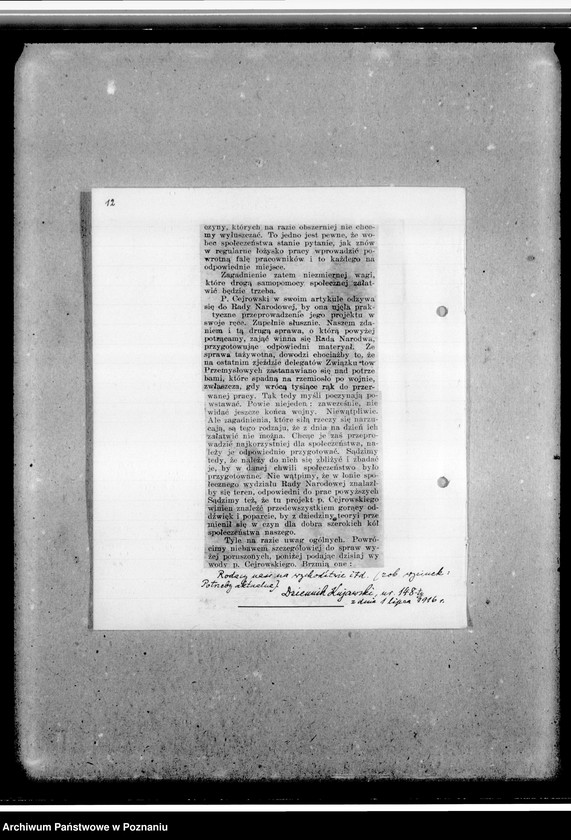 12
czyny, których na razie obszerniej nie chce-
my wyłuszczać. To jedno jest pewne, że wo-
bec społeczeństwa stanie pytanie, jak znów
w regularne łożysko pracy wprowadzić po-
wrotną falę pracowników i to każdego na
odpowiednie miejsce.
Zagadnienie zatem niezmiernej wagi,
które drogą samopomocy społecznej załat-
wić będzie trzeba.
P. Cejrowski w swoim artykule odzywa
się do Rady Narodowej, by ona ujęła prak-
tyczne przeprowadzenie jego projektu w
swoje ręce. Zupełnie słusznie. Naszem zda-
niem i tą drugą sprawą, o którą powyżej
potrącamy, zająć winna się Rada Narodwa,
przygotowując odpowiedni materyał. Że
sprawa ta żywotna, dowodzi chociażby to, że
na ostatnim zjeździe delegatów Związku tow
Przemysłowych zastanawiano się nad potrze
bami, które spadną na rzemiosło po wojnie,
zwłaszcza, gdy wrócą tysiące rąk do przer-
wanej pracy. Tak tedy myśli poczynają po-
wstawać. Powie niejeden: zawcześnie, nie
widać jeszcze końca wojny. Niewątpliwie.
Ale zagadnienia, które siłą rzeczy się narzu-
cają, są tego rodzaju, że z dnia na dzień ich
załatwić nie można. Chcąc je zaś przepro-
wadzić najkorzystniej dla społeczeństwa, na-
leży je odpowiednio przygotować. Sądzimy
tedy, że należy do nich się zbliżyć i zbadać
je, by w danej chwili społeczeństwo było
przygotowane. Nie wątpimy, że w łonie spo-
łecznego wydziału Rady Narodowej znalazł-
by się teren, odpowiedni do prac powyższych
Sądzimy też, że tu projekt p. Cejrowskiego
winien znaleźć przedewszystkiem gorący od-
dźwięk i poparcie, by z dziedziny teoryi prze
mienił się w czyn dla dobra szerokich kół
społeczeństwa naszego.
Tyle na razie uwag ogólnych. Powró-
cimy niebawem szczegółowiej do spraw wy-
żej poruszonych, poniżej podając dzisiaj wy
wody p. Cejrowskiego. Brzmią one:
Rodacy nasi na wychodźtwie itd. (zob. wycinek:
Potrzeby aktualne)
Dziennik Kujawski, nr. 148
z dnia 1 lipca 1916 r.
Archiwum Państwowe w Poznaniu